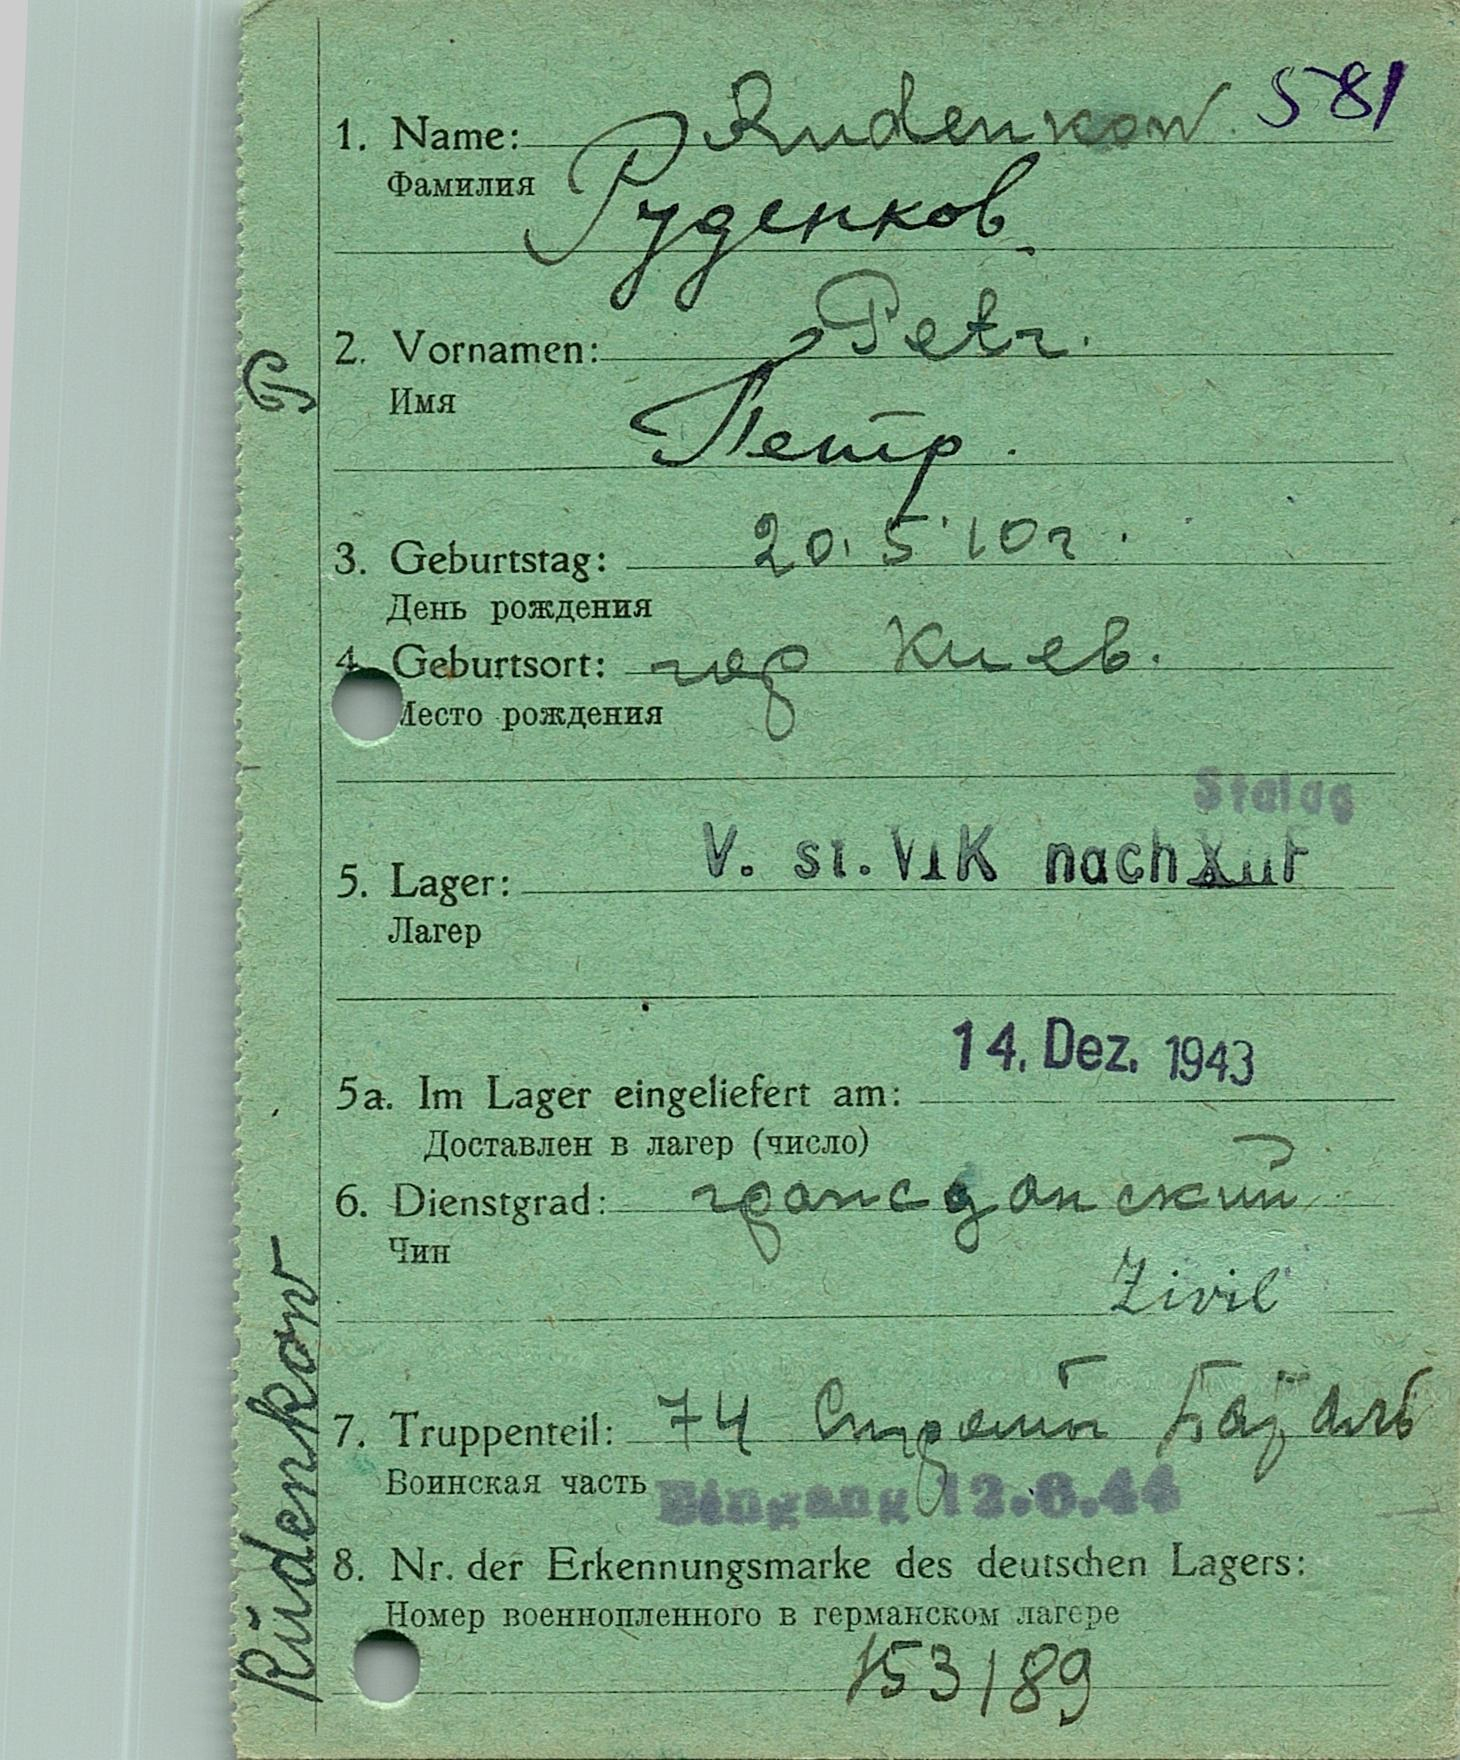 581
1. Name: Rudenkow.
Фамилия Руденков
2. Vornamen: Petr.
Имя Петр.
3. Geburtstag: 20.5.10 г.
День рождения
4. Geburtsort: гор Киев.
Место рождения
Stalag
5. Lager: V. St. VI K nach XII F
Лагер
14. Dez. 1943
5a. Im Lager eingeliefert am:
Доставлен в лагер (число)
6. Dienstgrad: гражданский
Чин
Zivil
7. Truppenteil: 74
Воинская часть Eingang 12.6.44
8. Nr. der Erkennungsmarke des deutschen Lagers:
Номер военнопленного в германском лагере
153/89
Rŭdenkow P